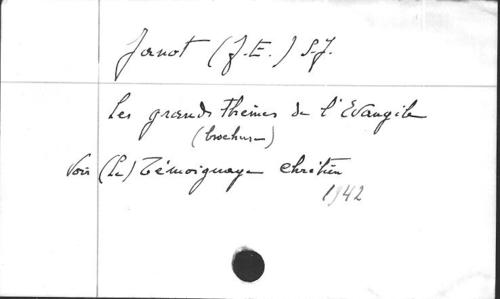 Janot (J.-E.) S.J.
Les grands Thèmes de l'Evangile
(brochure)
Voir (Le) Témoignage chrétien
1942